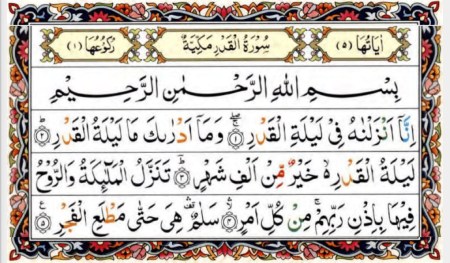 اٰيَاتُهَا (٥) سُوْرَةُ الْقَدْرِ مَكِّيَّةٌ رُكُوْعُهَا (١)
بِسْمِ اللهِ الرَّحْمٰنِ الرَّحِيْمِ
اِنَّاۤ اَنْزَلْنٰهُ فِيْ لَيْلَةِ الْقَدْرِ ۚۖ ﴿١﴾ وَمَاۤ اَدْرٰىكَ مَا لَيْلَةُ الْقَدْرِ ؕ ﴿٢﴾
لَيْلَةُ الْقَدْرِ ۙ خَيْرٌ مِّنْ اَلْفِ شَهْرٍ ؕ ﴿٣﴾ تَنَزَّلُ الْمَلٰٓئِكَةُ وَالرُّوْحُ
فِيْهَا بِاِذْنِ رَبِّهِمْ ۚ مِنْ كُلِّ اَمْرٍ ۙ ﴿٤﴾ سَلٰمٌ ۛ هِيَ حَتّٰى مَطْلَعِ الْفَجْرِ ﴿٥﴾